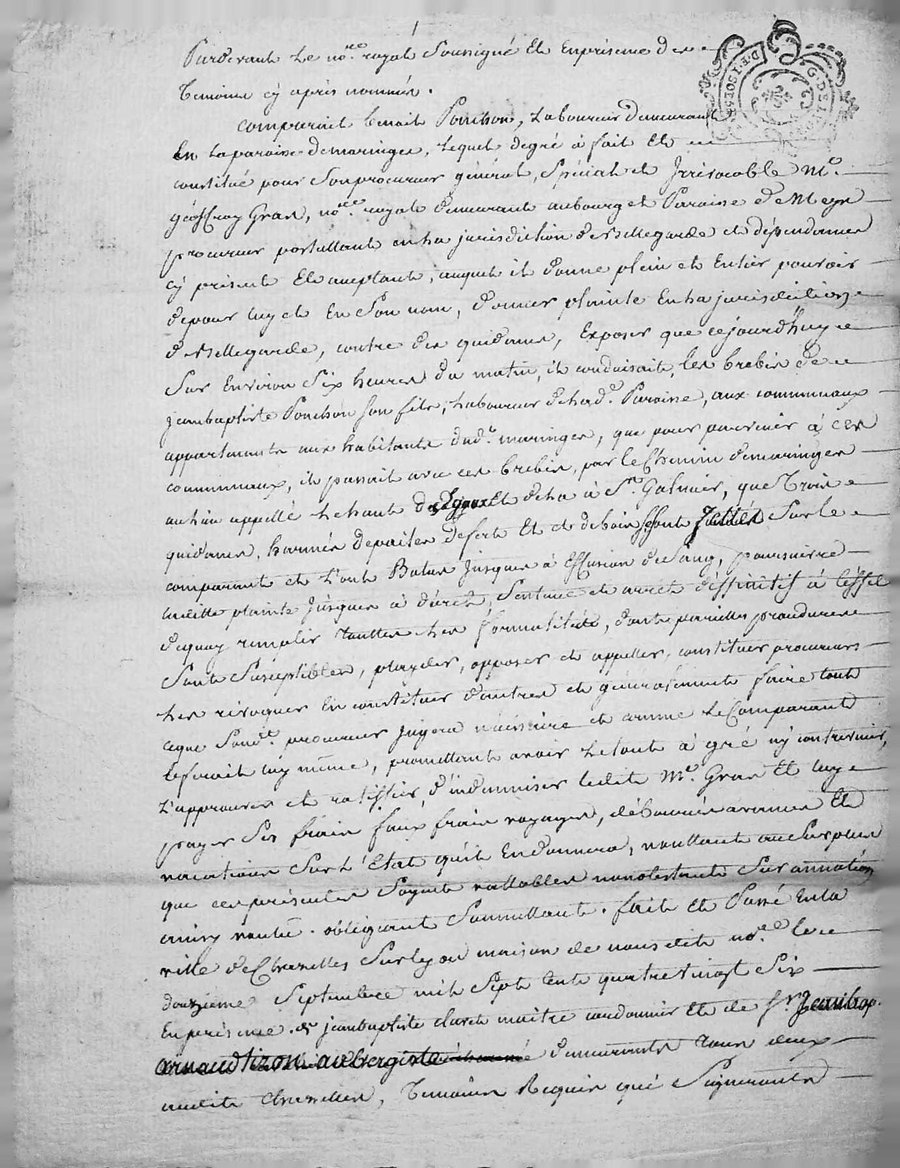 Pardevant le no.re royal soussigné et en presence des
temoins cy apres nommés.
Comparait benoit Ponchon, laboureur demeurant
en la paroisse de maringes, lequel de gré à fait et
constitué pour son procureur général, spécial et irrévocable Me.
géoffroy Gras, no.re royal demeurant au bourg et Paroisse de Meys
procureur postullant en la jurisdiction de Bellegarde et dépendances
cy présent et acceptant, auquel il donne plein et entier pouvoir
de pour luy et en son nom, donner plainte en la jurisdiction
de Bellegarde, contre des quidams, exposer que cejourd'huy
sur environ six heures du matin, il conduisait les brebis de
jeanbaptiste Ponchon son fils, laboureur de lad.e Paroisse, aux communaux
appartenants aux habitants dud. maringes, que pour parvenir à ces
communaux, il passait avec ces brebis, par le chemin de maringes
au lieu appellé le haut des et de la à St. Galmier, que trois
quidams, harmés de paites de fert et de bois se sont jettés sur le
comparant et l'ont Batus jusques à effusion de sang, poursuivre
ladite plainte jusques à décret, sentence et arrêt deffinitif à l'effet
de quoy remplir touttes les formalités, dont pareilles procedures
sont suseptibles, playder, opposer et appeller, constituer procureurs
les révoquer en constituer d'autres et généralement faire tout
ceque sond.t procureur jugera nécessaire et comme le Comparant
le ferait luy même, promettant avoir le tout à gré n'y contrevenir,
l'approuver et ratiffier, d'indemniser ledit Me. Gras et luy
payer ses frais faux frais voyages, déboursés avances et
vacations sur l'État qu'il en donnera, voullant au surplus
que ces présentes soyent vallables nonobstant surannation
ainsy voulu. obligeant soumettant. fait et Passé en la
ville de Chazelles sur lyon maison de nousdit no.re le
douzieme septembre mil sept cent quatrevingt six
En présence de jeanbaptiste maître cordonnier et de sr. Jean bap.
arnaud tizon aubergiste demeurants tous deux
audit Chazelles, temoins Requis qui signeront